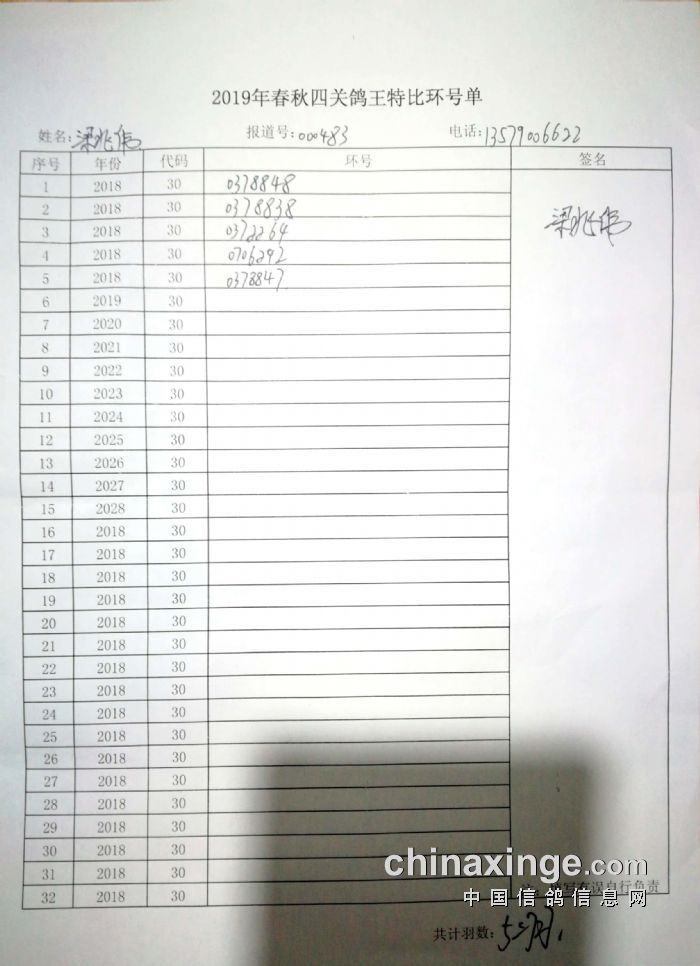 2019年春秋四关鸽王特比环号单
姓名:梁兆伟 报道号:000483 电话:13579006622
序号 年份 代码 环号 签名
1 2018 30 0378848
2 2018 30 0378838 梁兆伟
3 2018 30 0372264
4 2018 30 0706292
5 2018 30 0378847
6 2019 30
7 2020 30
8 2021 30
9 2022 30
10 2023 30
11 2024 30
12 2025 30
13 2026 30
14 2027 30
15 2028 30
16 2018 30
17 2018 30
18 2018 30
19 2018 30
20 2018 30
21 2018 30
22 2018 30
23 2018 30
24 2018 30
25 2018 30
26 2018 30
27 2018 30
28 2018 30
29 2018 30
30 2018 30
31 2018 30
32 2018 30
写有误自行负责
chinaxinge.com
中国信鸽信息网
共计羽数: